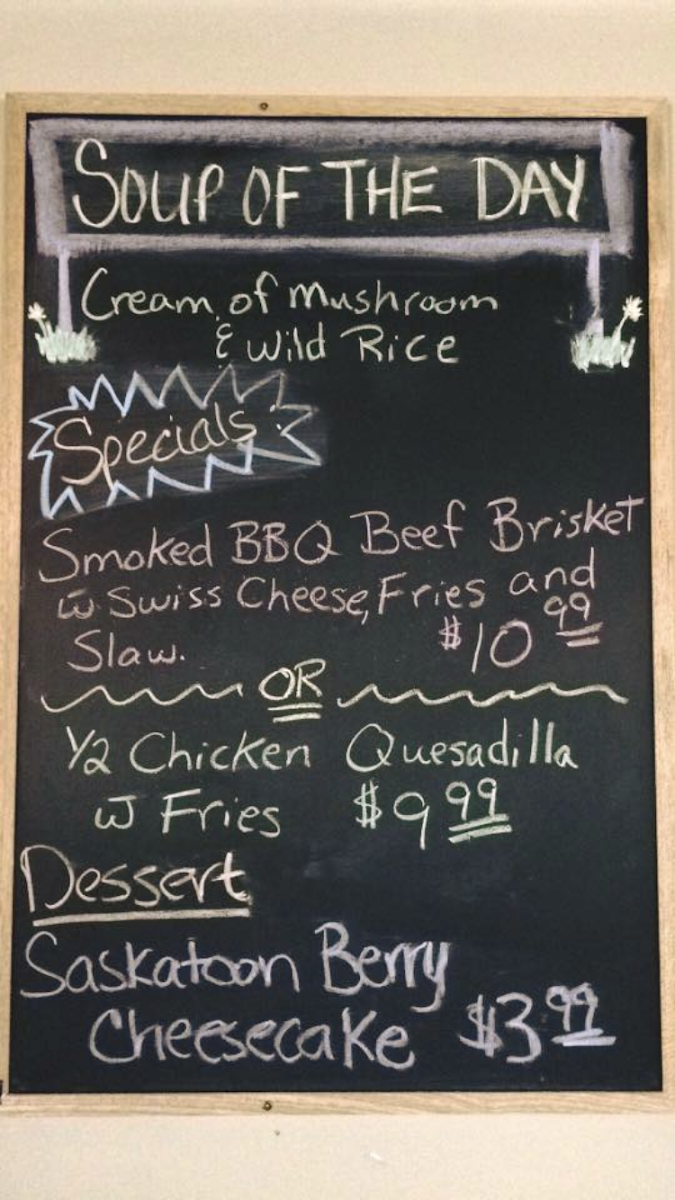 SOUP OF THE DAY
Cream of Mushroom
& Wild Rice
Specials:
Smoked BBQ Beef Brisket
w Swiss Cheese, Fries and
Slaw. $10 99
OR
1/2 Chicken Quesadilla
w Fries $9 99
Dessert
Saskatoon Berry
Cheesecake $3 99